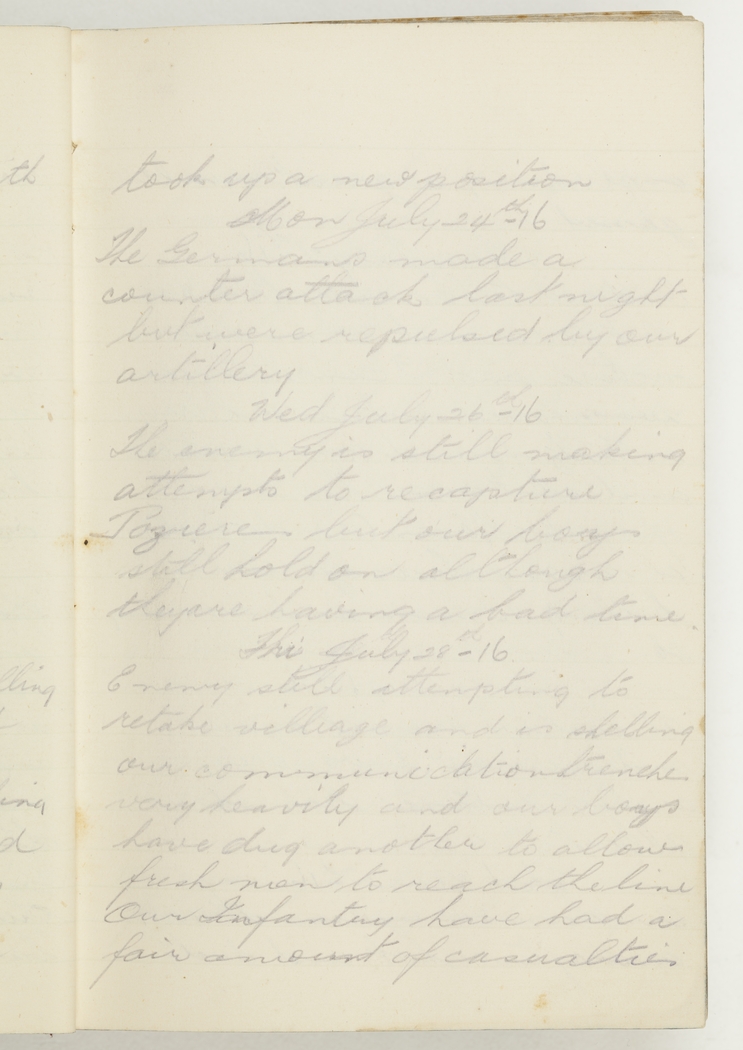 took up a new position
Mon July 24th-16
The Germans made a
counter attack last night
but were repulsed by our
artillery
Wed July 26th-16
The enemy is still making
attempts to recapture
Poziere but our boys
still hold on although
theyare having a bad time.
July 28th-16.
Enemy still attempting to
retake villiage and is shelling
our communication trenches
very heavily and our boys
have dug another to allow
fresh men to reach the line
Our Infantry have had a
fair amount of casualties